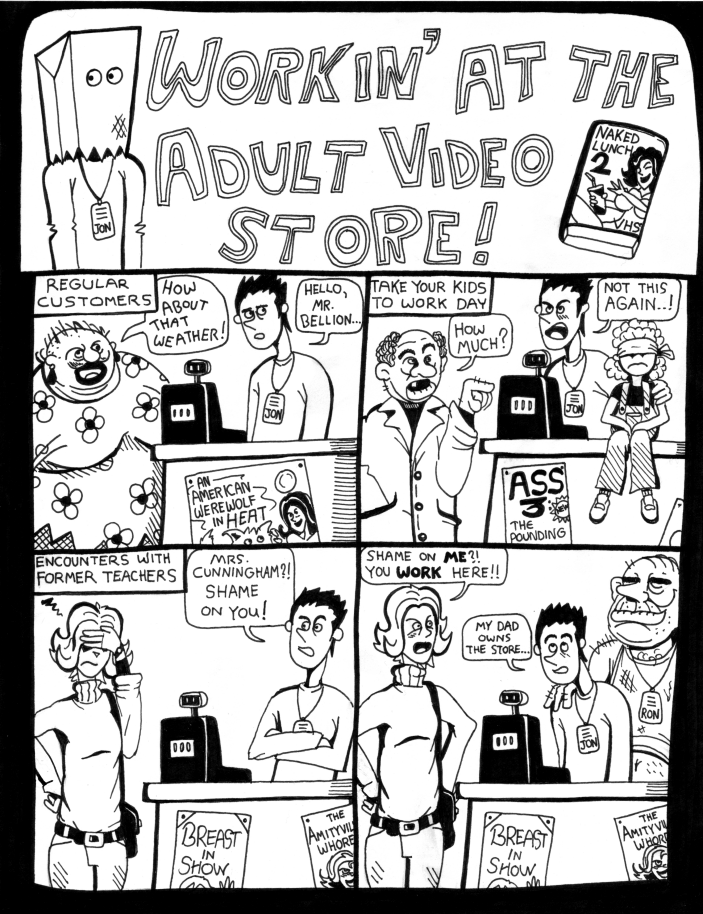 WORKIN' AT THE
ADULT VIDEO
STORE!
JON
NAKED
LUNCH
2
VHS
REGULAR
CUSTOMERS
HOW
ABOUT
THAT
WEATHER!
HELLO,
MR.
BELLION...
JON
AN
AMERICAN
WEREWOLF
IN HEAT
TAKE YOUR KIDS
TO WORK DAY
HOW
MUCH?
NOT THIS
AGAIN..!
JON
ASS
3
THE
POUNDING
ENCOUNTERS WITH
FORMER TEACHERS
MRS.
CUNNINGHAM?!
SHAME
ON YOU!
BREAST
IN
SHOW
THE
AMITYVIL
WHORE
SHAME ON ME?!
YOU WORK HERE!!
MY DAD
OWNS
THE STORE...
RON
JON
BREAST
IN
SHOW
THE
AMITYVIL
WHORE